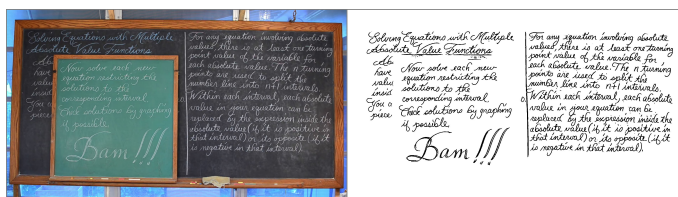 Solving Equations with Multiple
Absolute Value Functions
Abs
have
valu
insid
You o
piece
Now solve each new
equation restricting the
solutions to the
corresponding interval.
Check solutions by graphing
if possible.
Bam!!!
For any equation involving absolute
values, there is at least one turning
point value of the variable for
each absolute value. The n turning
points are used to split the
number line into n+1 intervals.
Within each interval, each absolute
value in your equation can be
replaced by the expression inside the
absolute value (if it is positive in
that interval) or its opposite (if it
is negative in that interval).
Solving Equations with Multiple
Absolute Value Functions
Abs
have
valu
insid
You o
piece
Now solve each new
equation restricting the
solutions to the
corresponding interval.
Check solutions by graphing
if possible.
Bam!!!
For any equation involving absolute
values, there is at least one turning
point value of the variable for
each absolute value. The n turning
points are used to split the
number line into n+1 intervals.
Within each interval, each absolute
value in your equation can be
replaced by the expression inside the
absolute value (if it is positive in
that interval) or its opposite (if it
is negative in that interval).